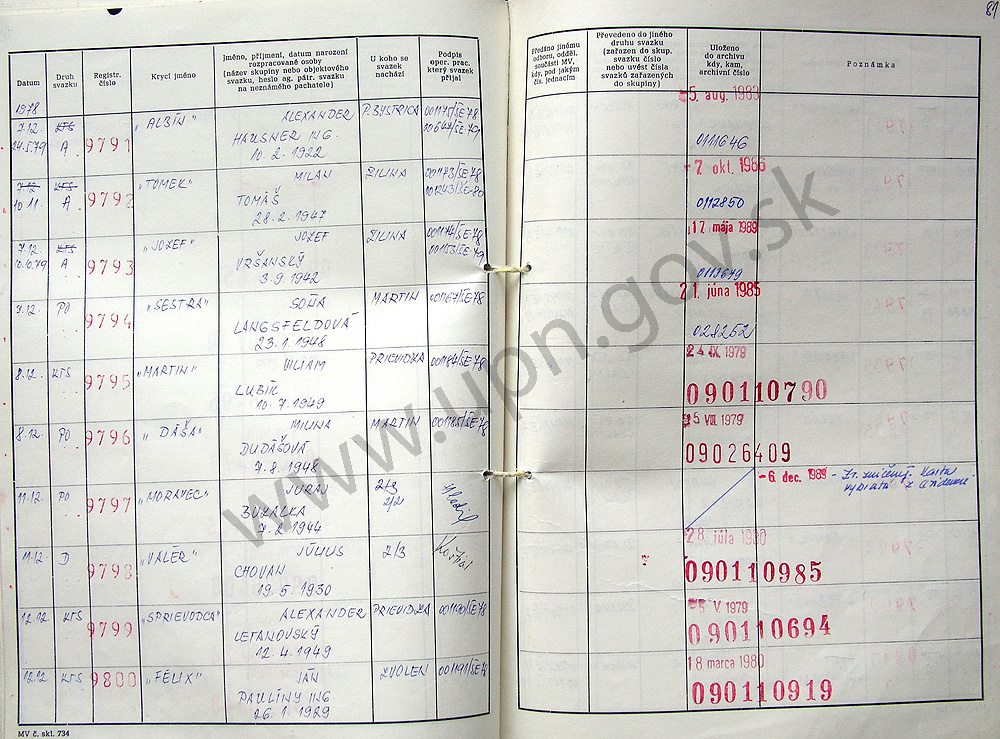 81
Datum
Druh svazku
Registr. číslo
Krycí jméno
Jméno, příjmení, datum narození
rozpracované osoby
(název skupiny nebo objektového
svazku, heslo ag. pátr. svazku
na neznámého pachatele)
U koho se
svazek
nachází
Podpis
oper. prac.
který svazek
přijal
Předáno jinému
odboru, odděl.
součásti MV,
kdy, pod jakým
čís. jednacím
Převedeno do jiného
druhu svazku
(zařazen do skup.
svazku číslo
nebo uvést čísla
svazků zařazených
do skupiny)
Uloženo
do archivu
kdy, kam,
archivní číslo
Poznámka
1978
7.12. KTS 9791 "ALBÍN" ALEXANDER P. BYSTRICA 001175/ŠE-78 5. aug. 1983
24.5.79 A HAUSNER ING. 00647/ŠE-79
10.2.1922 0111646
7.12. KTS 9792 "TOMEK" MILAN ŽILINA 001173/ŠE-78 -7. okt. 1986
10.11. A TOMÁŠ 001243/ŠE-80
28.2.1947 0112850
7.12. KTS 9793 "JOZEF" JOZEF ŽILINA 001174/ŠE-78 17. mája 1989
10.10.79 A VRŠANSKÝ 001153/ŠE-79
3.9.1942 0113679
7.12. PO 9794 "SESTRA" SOŇA MARTIN 001167/ŠE-78 21. júna 1985
LANGSFELDOVÁ
23.1.1948 028252
8.12. KTS 9795 "MARTIN" VILIAM PRIEVIDZA 001184/ŠE-78 24 IX 1979
LUBÍK
10.7.1949 090110790
8.12. PO 9796 "DÁŠA" MILINA MARTIN 001185/ŠE-78 5 VII 1979
DUDÁŠOVÁ
7.8.1948 09026409
11.12. PO 9797 "MORAVEC" JURAJ 2/3 -6. dec. 1989 - Zv. zničený. Karta
BUZALKA 2/2 vybratá z evidencie
7.2.1944
11.12. D 9798 "VALÉR" JÚLIUS 2/3 28 júla 1980
CHOVAN
19.5.1930 090110985
12.12 KTS 9799 "SPRIEVODCA" ALEXANDER PRIEVIDZA 001190/ŠE-78 5 V 1979
LETANOVSKÝ
12.4.1949 090110694
12.12 KTS 9800 "FÉLIX" JÁN ZVOLEN 001191/ŠE-78 18 marca 1980
PAULÍNY ING
26.1.1929 090110919
MV č. skl. 734
www.upn.gov.sk